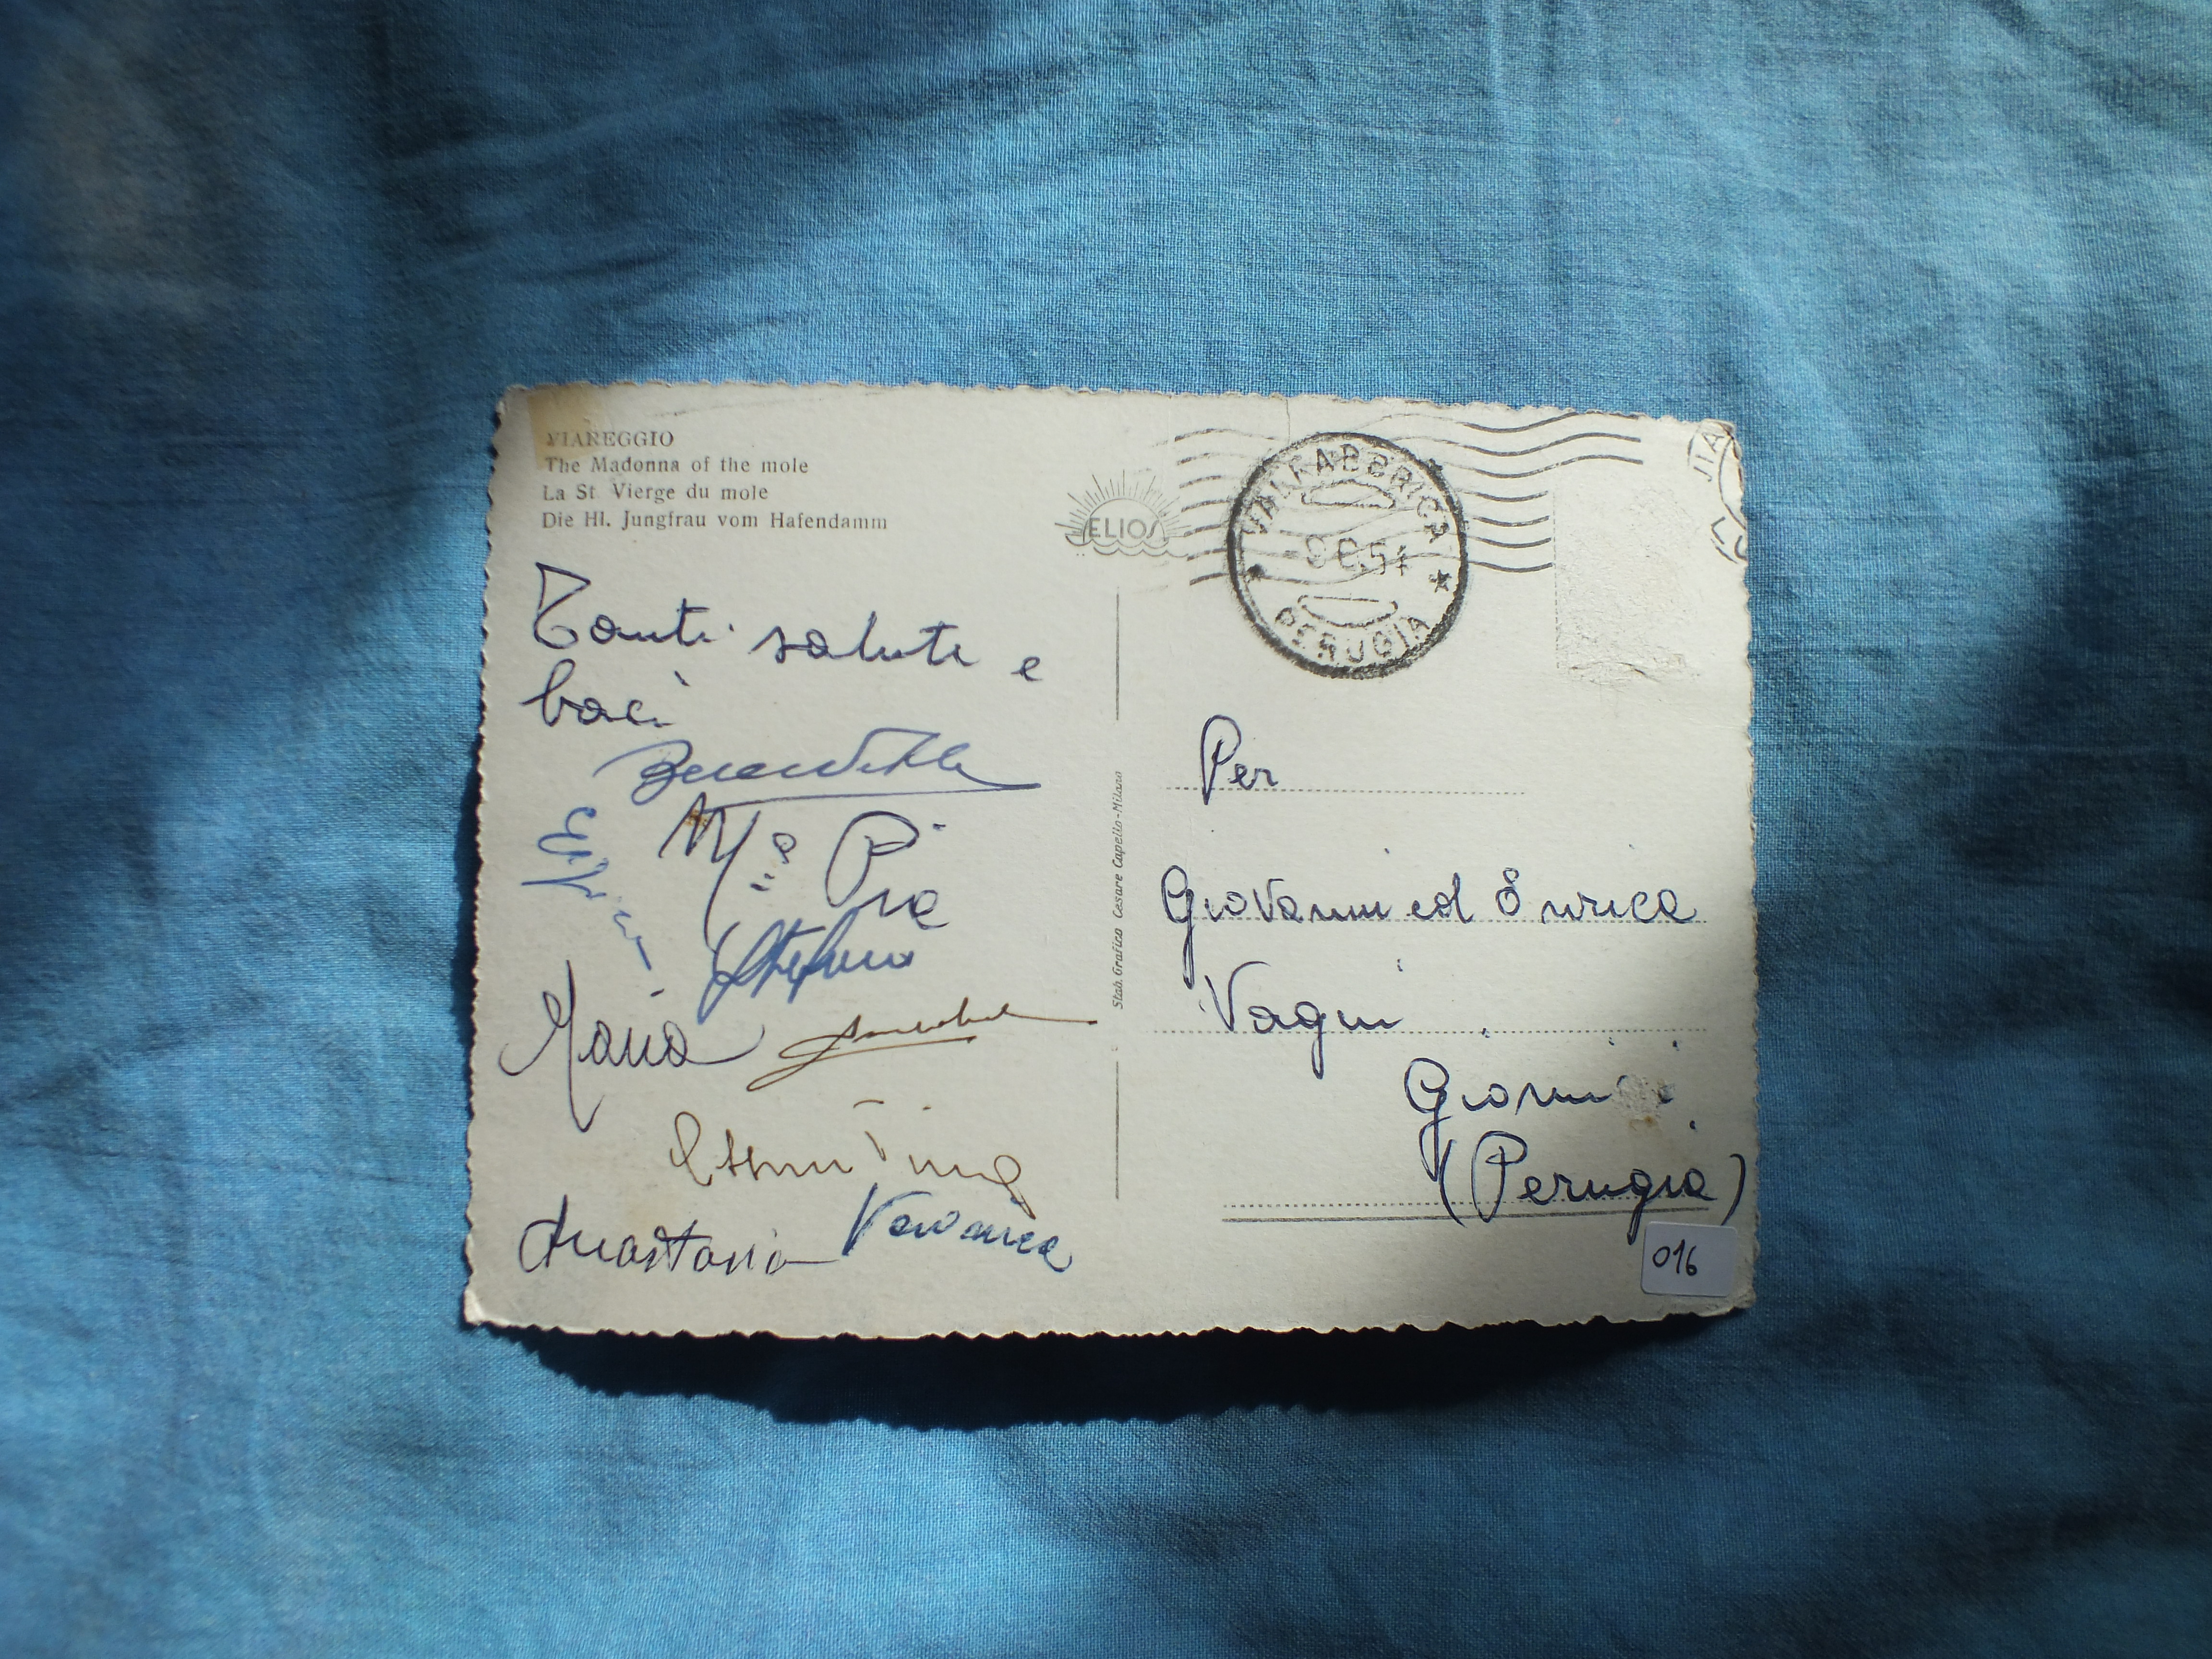 VIAREGGIO
The Madonna of the mole
La St. Vierge du mole
Die Hl. Jungfrau vom Hafendamm
ELIOS
VALFABBRICA
PERUGIA
Tanti saluti e
baci
Benedetta
Mª Pia
Stefano
Maria
Anastasia Veronica
Stab. Grafico Cesare Capello - Milano
Per
Giovanni ed Enrica
Vagni
(Perugia)
016